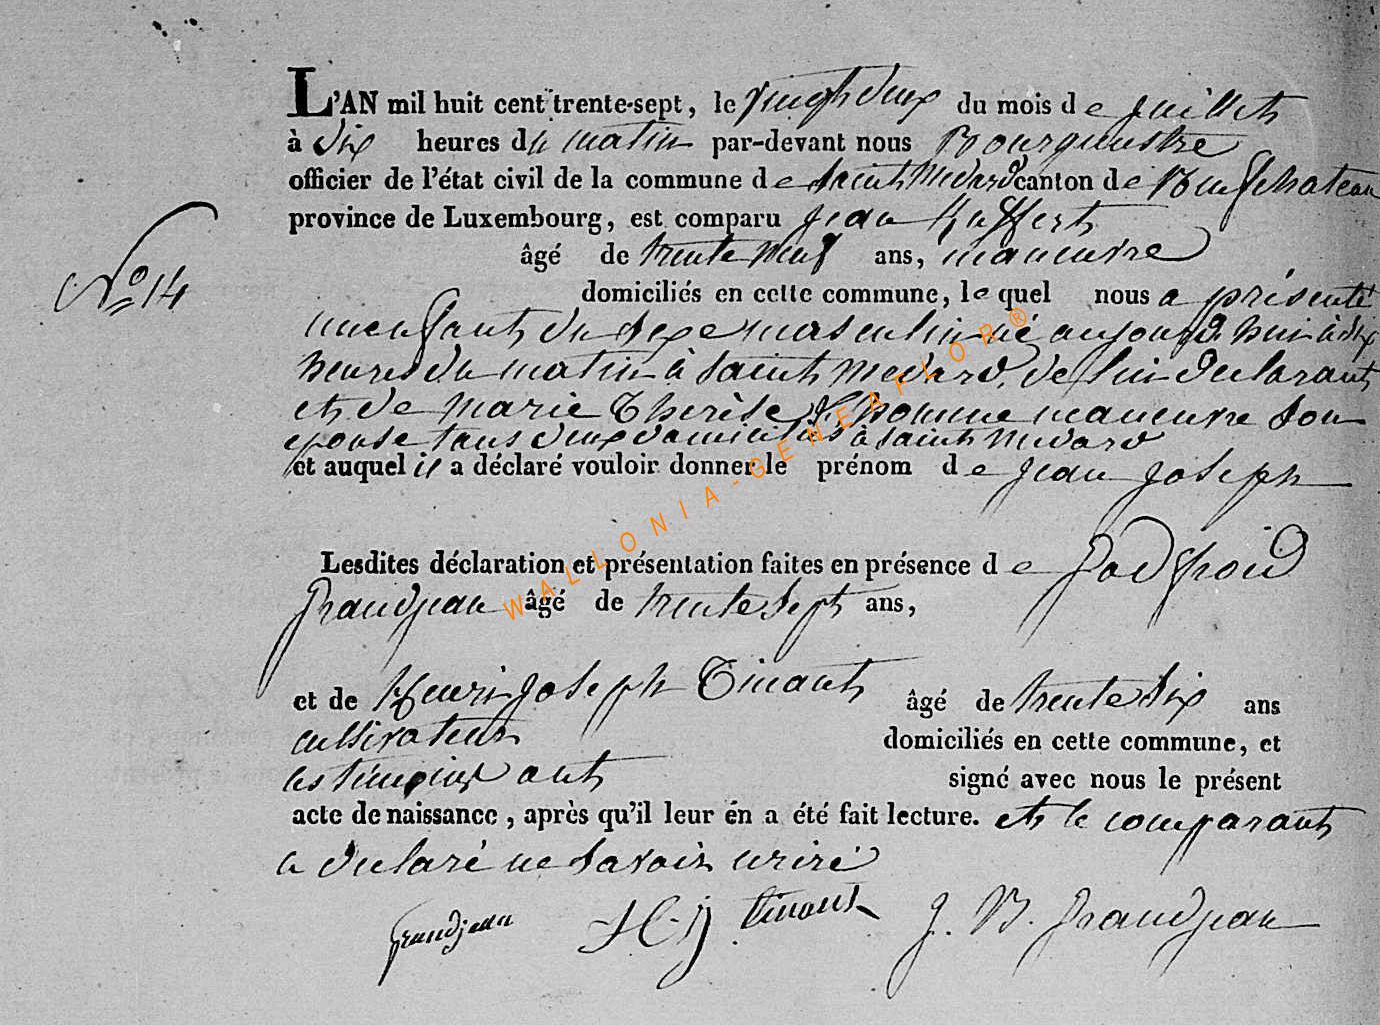 L'AN mil huit cent trente-sept, le vingt deux du mois de juillet
à dix heures du matin par-devant nous Bourguemstre
officier de l'état civil de la commune de saint Medard canton de Neufchateau
province de Luxembourg, est comparu jean
âgé de trente neuf ans, maneuvre
N° 14
domiciliés en cette commune, lequel nous a présenté
un enfant du sexe masculin né aujourd'hui à dix
heures du matin à saint Medard, de lui declarant
et de Marie Therèse L'homme maneuvre son
epouse tous deux domiciliés à saint Medard
et auquel il a déclaré vouloir donner le prénom de jean joseph
Lesdites déclaration et présentation faites en présence de Godfroid
Grandjean âgé de trente sept ans,
et de Henri joseph Tinant âgé de trente six ans
cultivateurs domiciliés en cette commune, et
les témoins ont signé avec nous le présent
acte de naissance, après qu'il leur en a été fait lecture. et le comparant
a declaré ne savoir ecrire
grandjean H. j tinant J. B. Grandjean
WALLONIA-GENEAFLOR®